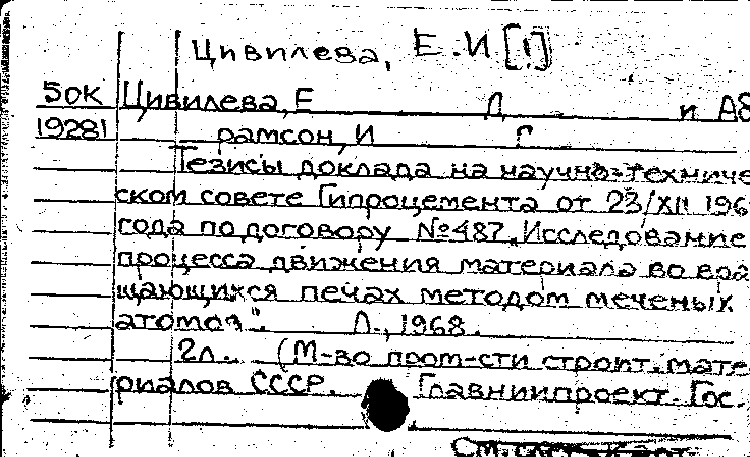 Цивилева, Е.И [1]
50К Цивилева, Е Д и Аб
19281 рамсон, И Г
Тезисы доклада на научно-техниче
ском совете Гипроцемента от 23/XII 196
года по договору №487 „Исследование
процесса движения материала во вра
щающихся печах методом меченых
атомов". Л., 1968.
2л. (М-во пром-сти строит. мате
риалов СССР. Главниипроект. Гос.
См. след. карт.